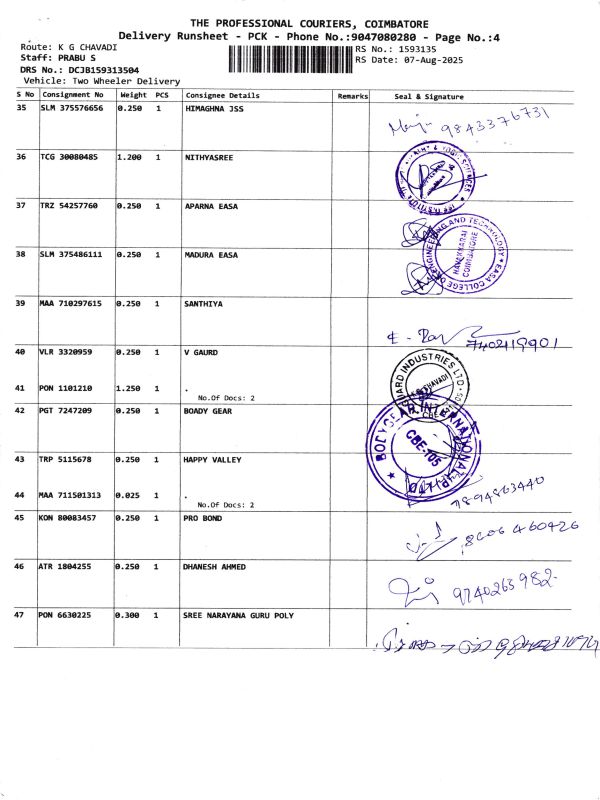 THE PROFESSIONAL COURIERS, COIMBATORE
Delivery Runsheet - PCK - Phone No.:9047080280 - Page No.:4
Route: K G CHAVADI
RS No.: 1593135
Staff: PRABU S
RS Date: 07-Aug-2025
DRS No.: DCJB159313504
Vehicle: Two Wheeler Delivery
S No Consignment No Weight PCS Consignee Details Remarks Seal & Signature
35 SLM 375576656 0.250 1 HIMAGHNA JSS
9843376731
36 TCG 30080485 1.200 1 NITHYASREE
& YOGIC SCIENCES
37 TRZ 54257760 0.250 1 APARNA EASA
EASA COLLEGE OF ENGINEERING AND TECHNOLOGY
NAVAKKARAI
COIMBATORE
38 SLM 375486111 0.250 1 MADURA EASA
39 MAA 710297615 0.250 1 SANTHIYA
7402419901
40 VLR 3320959 0.250 1 V GAURD
GUARD INDUSTRIES LTD
CHAVADI
41 PON 1101210 1.250 1 .
No.Of Docs: 2
42 PGT 7247209 0.250 1 BOADY GEAR
BODY GEAR INTERNATIONAL (P) LTD
CBE-105
43 TRP 5115678 0.250 1 HAPPY VALLEY
44 MAA 711501313 0.025 1 .
No.Of Docs: 2
45 KON 80083457 0.250 1 PRO BOND
46 ATR 1804255 0.250 1 DHANESH AHMED
9740263982
47 PON 6630225 0.300 1 SREE NARAYANA GURU POLY